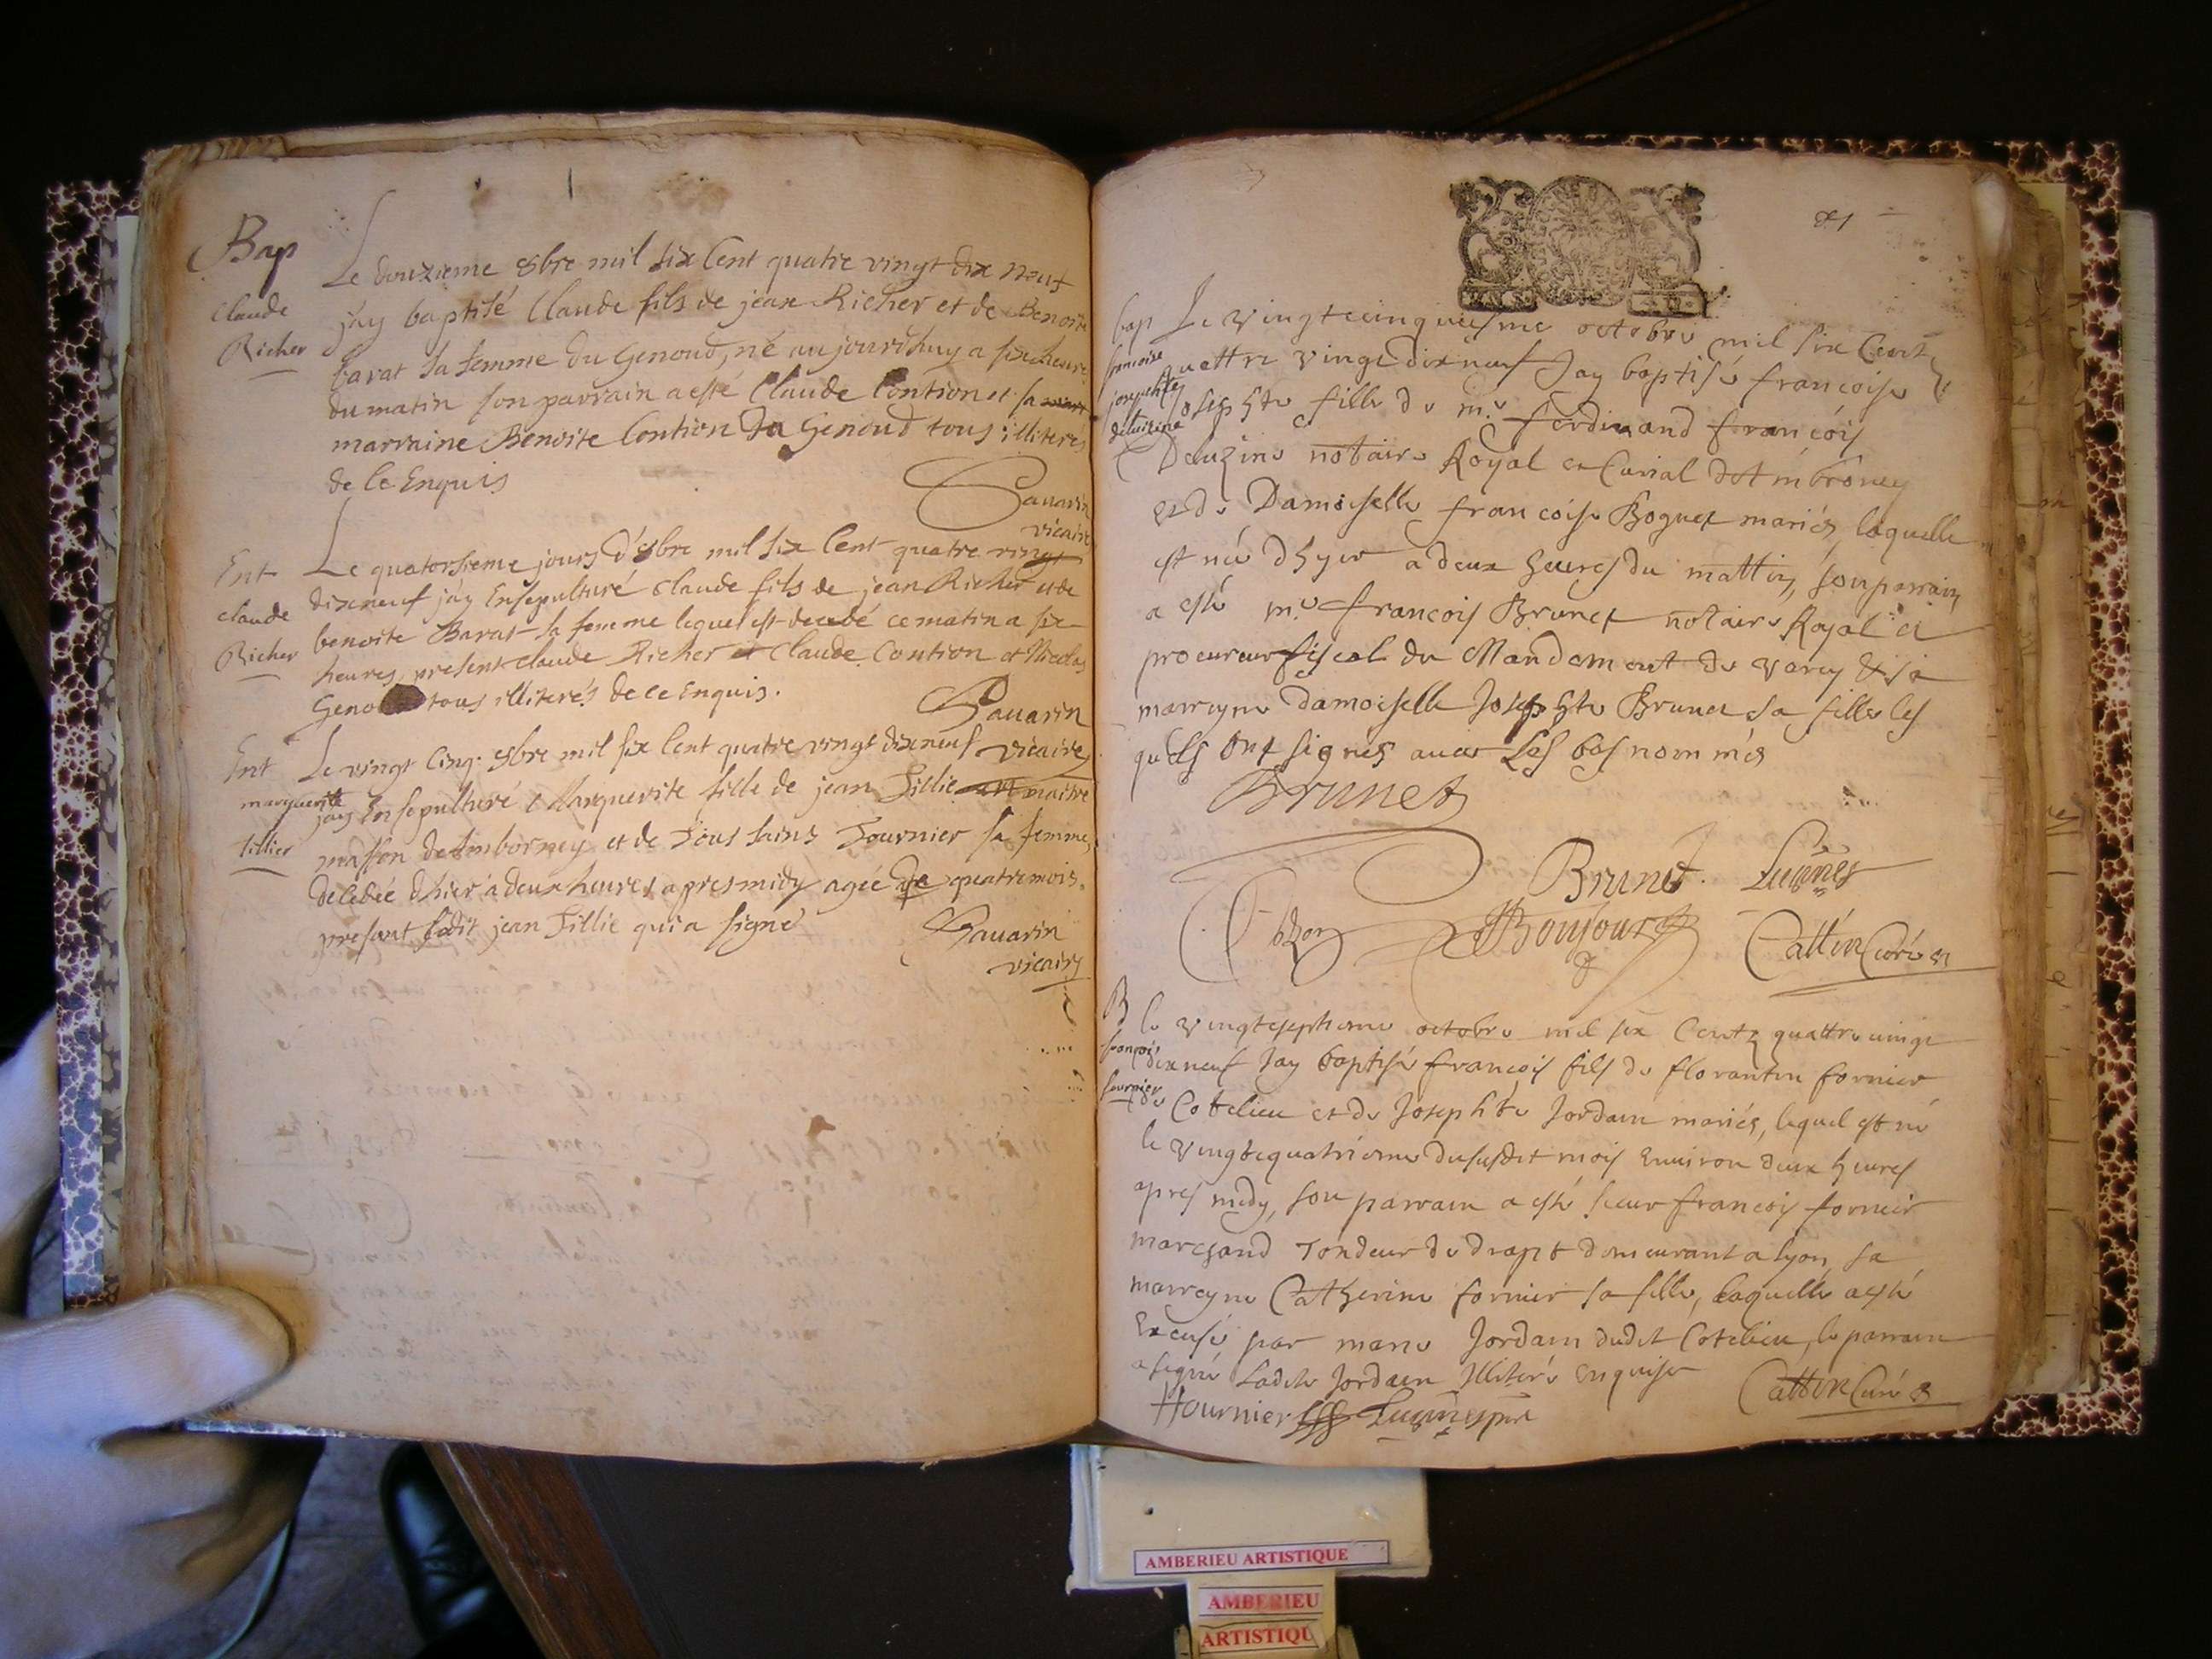 Bap
Claude
Richer
Le douzieme 8bre mil six Cent quatre vingt dix neuf
j'ay baptisé Claude fils de jean Richer et de Benoite
barat sa femme du Genoud, né aujourdhuy a six heures
du matin son parrain a esté Claude Contion et sa
marraine Benoite Contion du Genoud tous illiterés
de ce Enquis
Savarin
vicaire
Ent
claude
Richer
Le quatorsieme jours d'8bre mil six Cent quatre vingt
dixneuf j'ay Ensepulturé claude fils de jean Richer et de
benoite Barat sa femme lequel est decedé ce matin a six
heures, present claude Richer et Claude Contion et Nicolas
Geno tous illiterés de ce Enquis.
Savarin
vicaire
Ent
marguerite
tillier
Le vingt Cinq. 8bre mil six Cent quatre vingt dixneuf
jay Ensepulturé Marguerite fille de jean Tillie maitre
masson de Amborney et de Tous sains Fournier sa femme,
decedée dhier a deux heures apres midy agée de quatre mois.
presant ledit jean Tillie qui a signé
Savarin
vicaire
bap
francoise
josephte
deluzine
Le vingtecinquiesme octobre mil six Centz
quattre vingt dixneuf Jay baptisé francoise
Josephte fille de me. ferdinand francois
Deluzine notaire Royal et Curial d'Ambroney
et de Damoiselle francoise Boguet mariés, laquelle
est née d'hyer a deux heures du mattin, son parrain
a esté me. francois Brunet notaire Royal et
procureur fiscal du Mandement de varey & sa
marreyne damoiselle Josephte Brunet sa fille les
quels ont signés avec les bas nommés
Brunet
Brunet.
Bonjour
Cattin Curé
B
francois
fournier
le vingtseptieme octobre mil six Centz quattre vingt
dixneuf Jay baptisé francois fils de florantin fornier
de Cotelieu et de Josephte Jordain mariés, lequel est né
le vingtequatrieme du susdit mois environ deux heures
apres midy, son parrain a esté sieur francois fornier
marchand Tondeur de drapt demeurant a lyon, sa
marreyne Catherine fornier sa fille, laquelle a esté
Excusé par marie Jordain dudit Cotelieu, le parrain
a signé Ladite Jordain Illiteré enquise
Cattin Curé
fournier
AMBERIEU ARTISTIQUE
AMBERIEU
ARTISTIQU